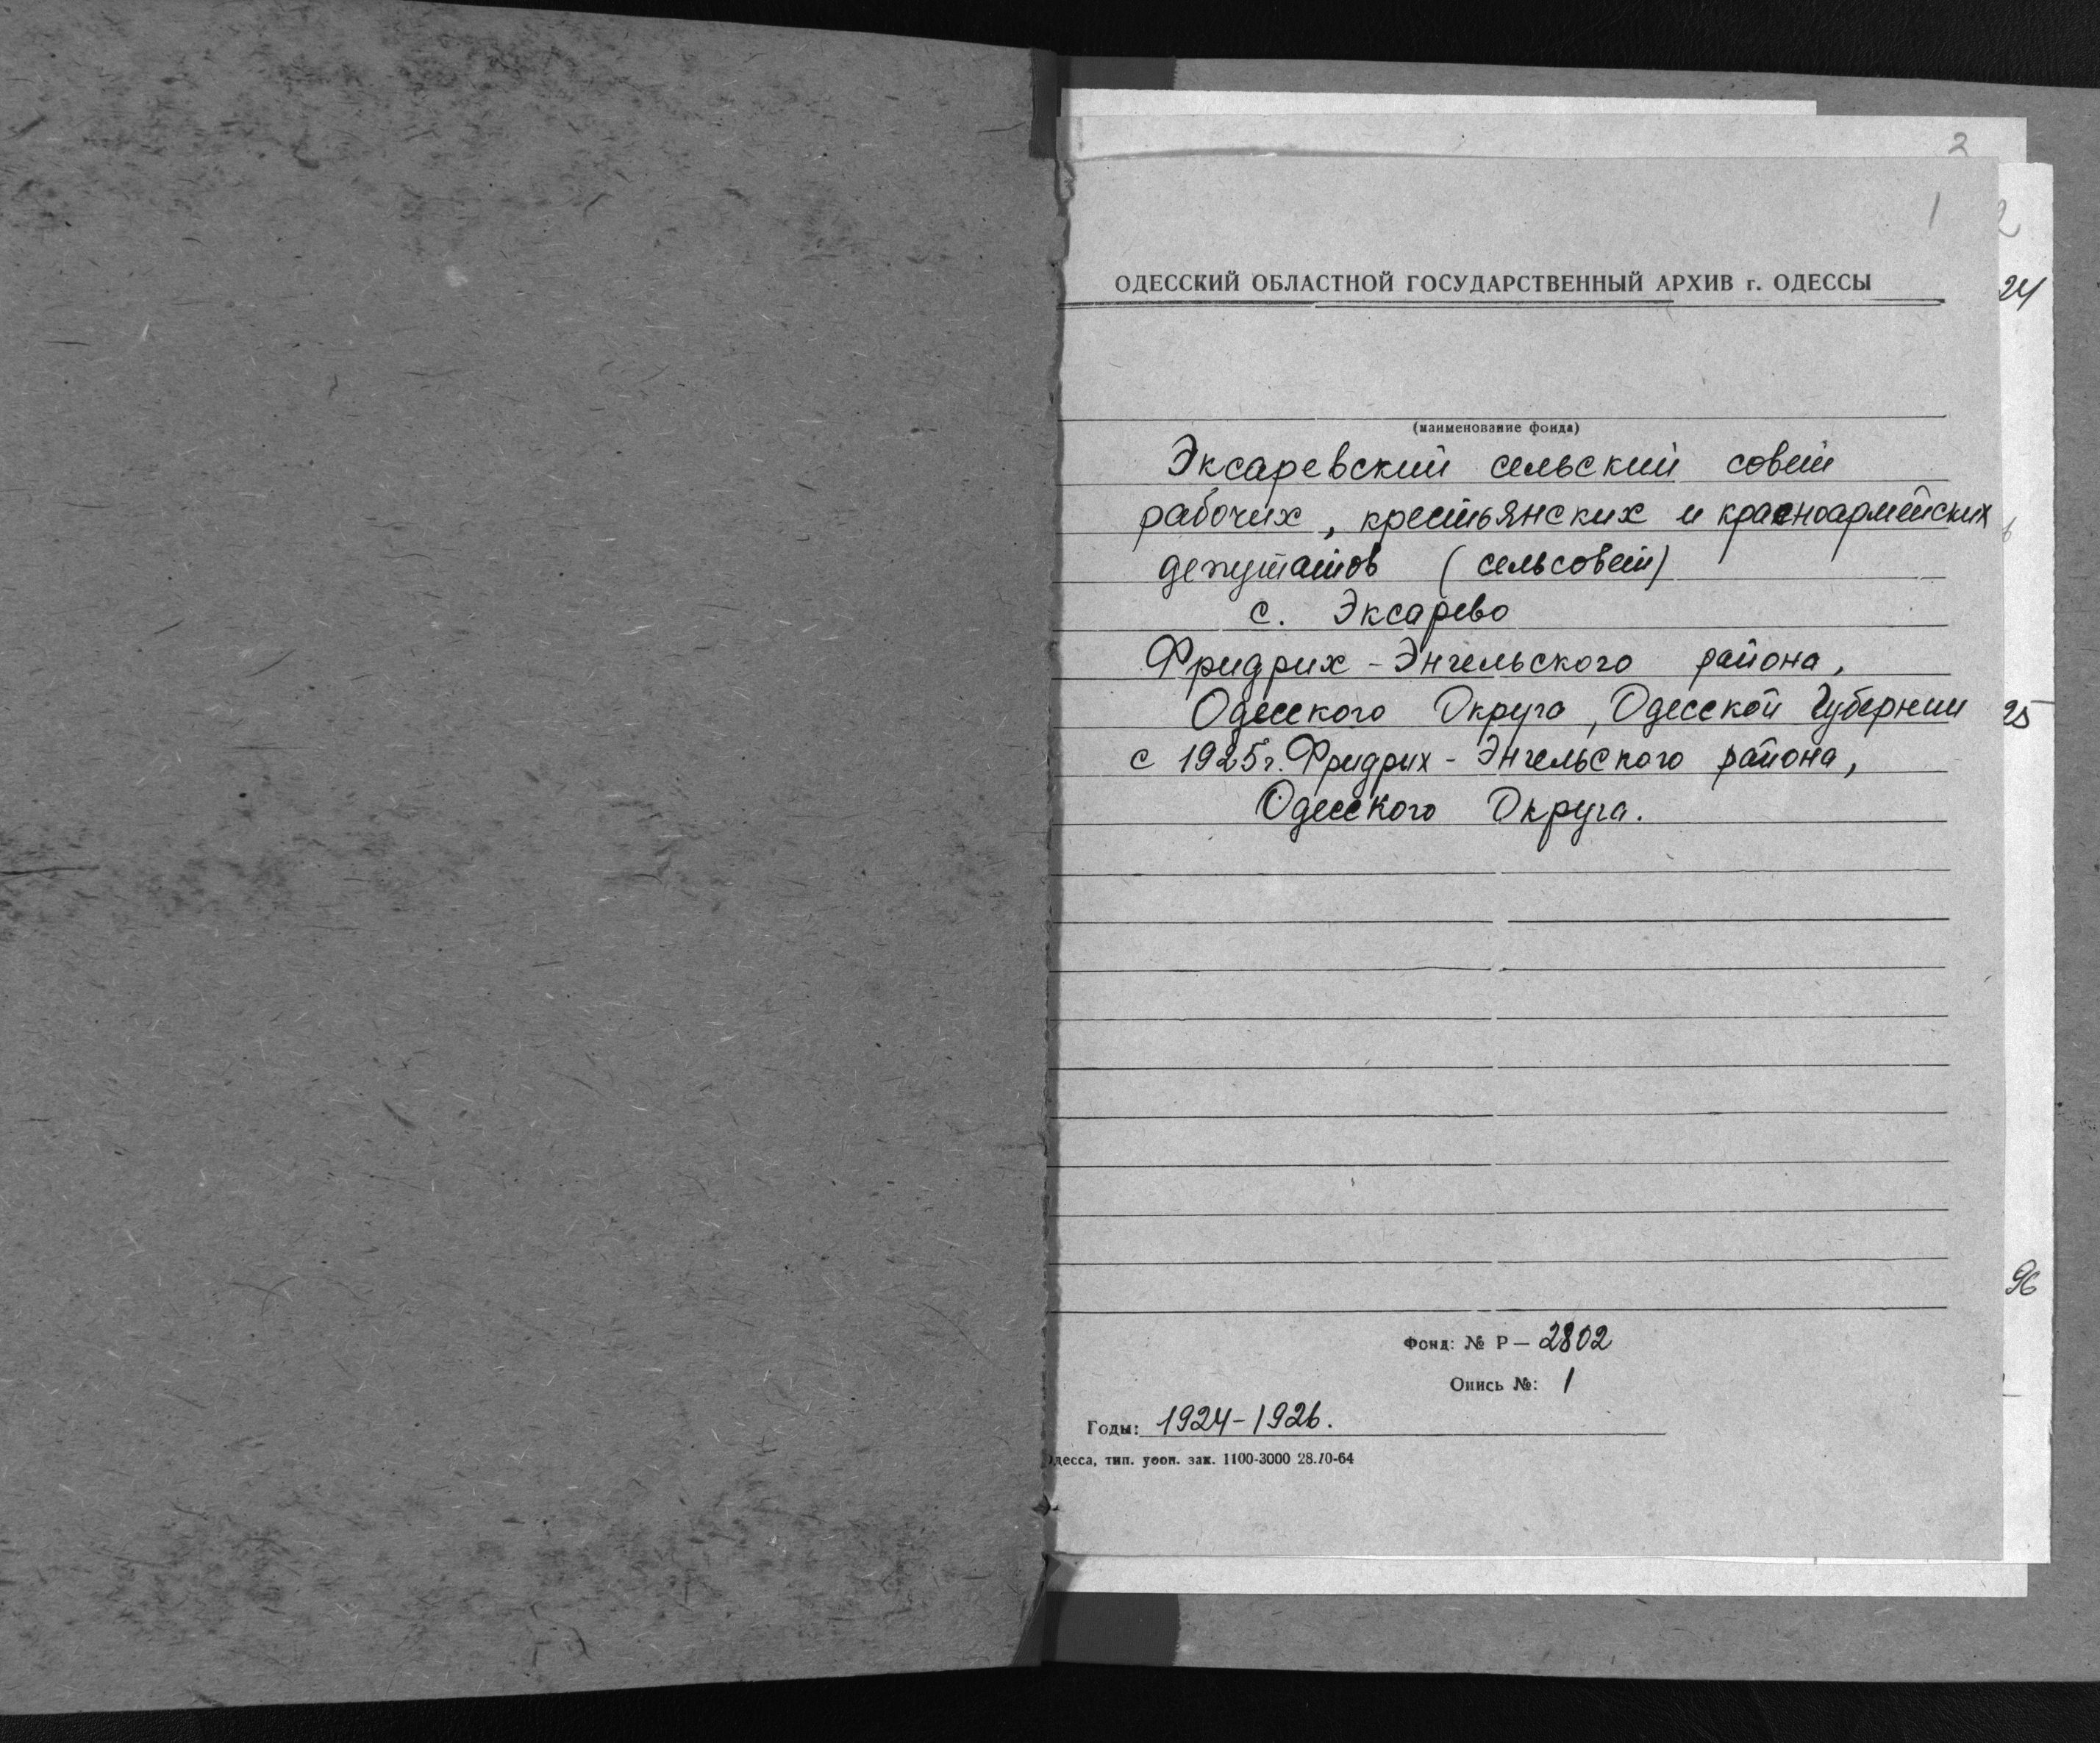 3
1
2
ОДЕССКИЙ ОБЛАСТНОЙ ГОСУДАРСТВЕННЫЙ АРХИВ г. ОДЕССЫ
24
(наименование фонда)
Эксаревский сельский совет
рабочих, крестьянских и красноармейских
депутатов (сельсовет)
с. Эксарево
Фридрих-Энгельского района,
Одесского Округа, Одесской Губернии
25
с 1925г. Фридрих-Энгельского района,
Одесского Округа.
96
Фонд: № Р—2802
Опись №: 1
Годы: 1924-1926.
десса, тип. уооп. зак. 1100-3000 28.10-64